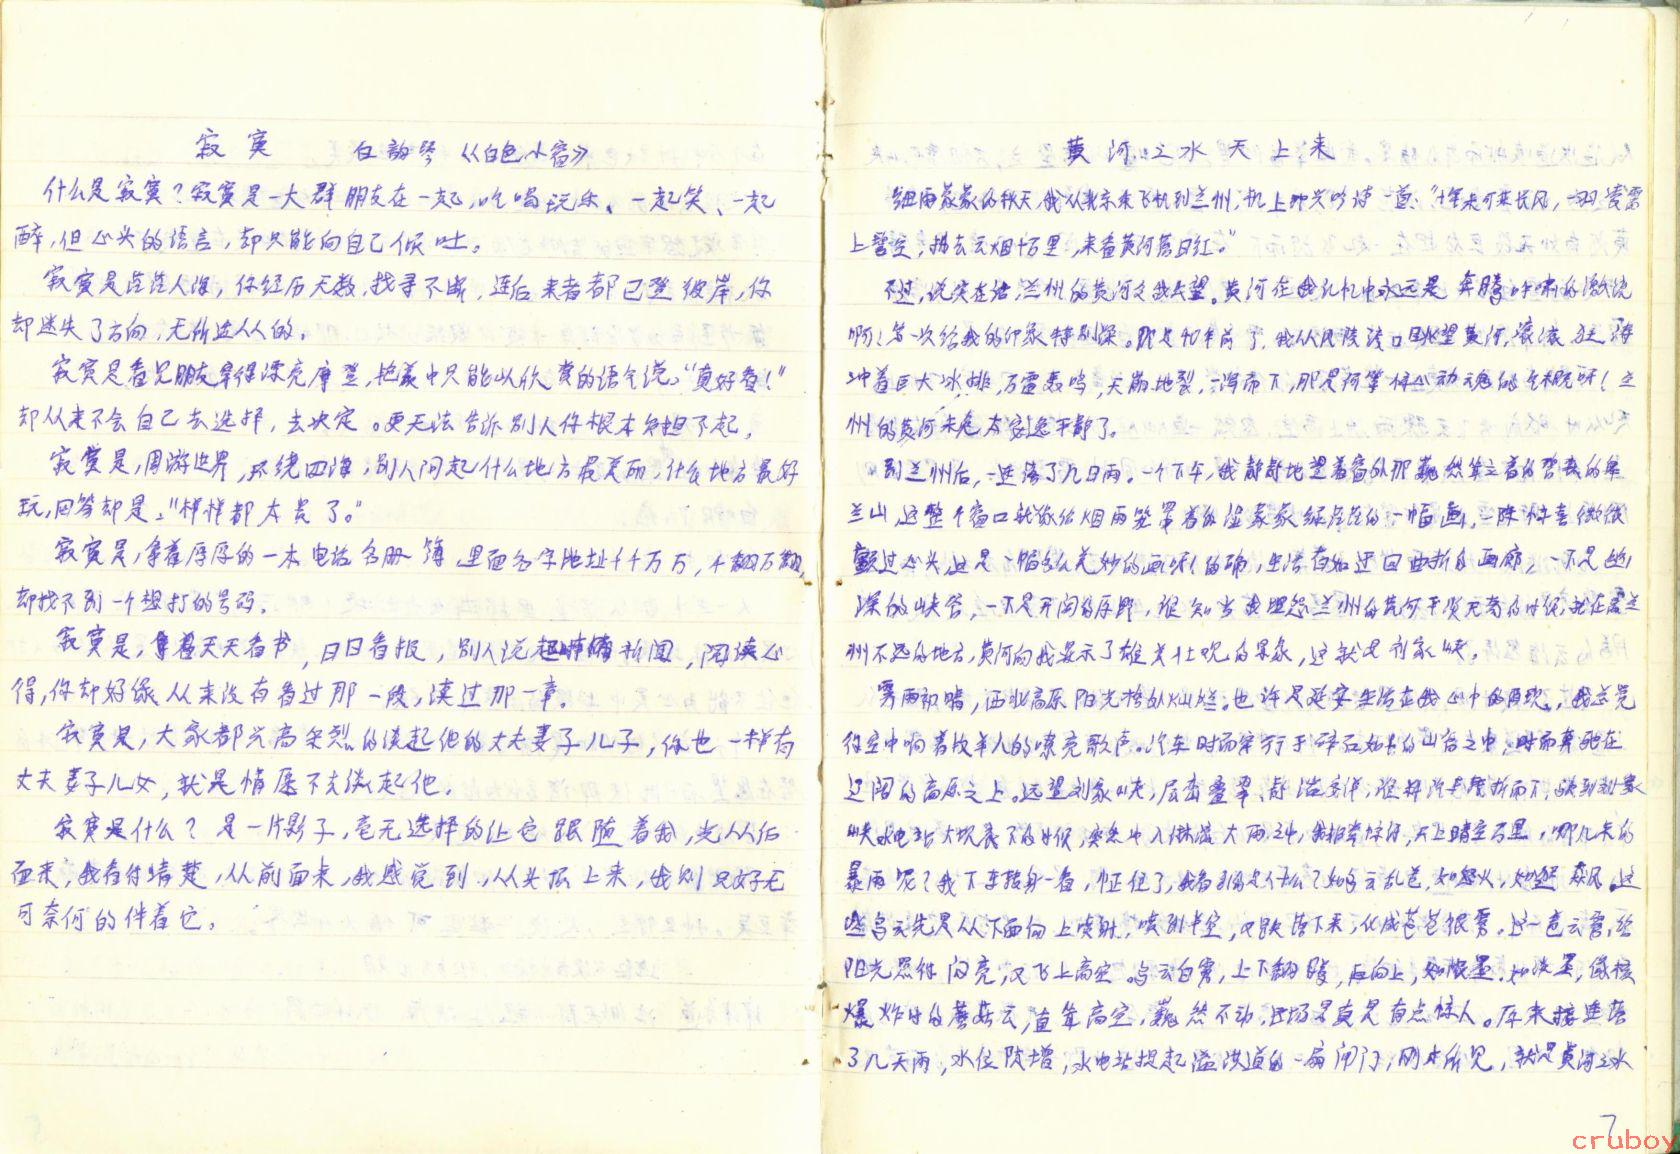 寂寞 白韵琴《白色小窗》
什么是寂寞？寂寞是一大群朋友在一起，吃喝玩乐、一起笑、一起
醉，但心头的语言，却只能向自己倾吐。
寂寞是茫茫人海，你经历无数，找寻不断，连后来者都已登彼岸，你
却迷失了方向，无所适从的。
寂寞是看见朋友穿得漂亮摩登，把羡中只能以欣赏的语气说，“真好看！”
却从来不会自己去选择，去决定。更无法告诉别人你根本负担不起，
寂寞是，周游世界，环绕四海，别人问起什么地方最美丽，什么地方最好
玩，回答却是，“样样都太贵了。”
寂寞是，拿着厚厚的一本电话名册簿，里面名字地址千千万万，千翻万翻，
却找不到一个想打的号码。
寂寞是，拿着天天看书，日日看报，别人说起新闻，阅读心
得，你却好像从来没有看过那一段，读过那一章。
寂寞是，大家都兴高采烈的谈起他的丈夫妻子儿子，你也一样有
丈夫妻子儿女，就是情愿不去谈起他。
寂寞是什么？是一片影子，毫无选择的让它跟随着我，光从后
面来，我看得清楚，从前面来，我感觉到，从头顶上来，我则只好无
可奈何的伴着它。
黄河之水天上来
细雨蒙蒙的秋天，我从北京乘飞机到兰州，机上即兴吟诗一首：“十年来可乘长风，一羽凌霄
上碧空，拂去云烟十万里，来看黄河落日红。”
不过，说实在话，兰州的黄河令我失望。黄河在我记忆中永远是奔腾呼啸的激流
啊！第一次给我的印象特别深。那是40年前了，我从风陵渡口眺望黄河，滚滚狂涛
冲着巨大冰排，万雷轰鸣，天崩地裂，一泻而下，那是何等惊心动魄的气概呀！兰
州的黄河未免太窄逸平静了。
到兰州后，一连落了几日雨。一个下午，我静静地望着窗外那巍然耸立着的苍莽的皋
兰山，这整个窗口就像给烟雨笼罩着的湿蒙蒙绿茫茫的一幅画，一阵惊喜微微
颤过心头，这是一幅多么美妙的画呀！的确，生活有如迂回曲折的画廊，一下是幽
深的峡谷，一下是开阔的原野，谁知当我埋怨兰州的黄河平淡无奇的时候，就在离兰
州不远的地方，黄河向我显示了雄关壮观的景象，这就是刘家峡。
雾雨初晴，西北高原阳光格外灿烂。也许是延安生活在我心中的再现，我总觉
得空中响着牧羊人的嘹亮歌声。汽车时而穿行于碎石如林的山谷之中，时而奔驰在
辽阔的高原之上。远望刘家峡，层峦叠翠，
峡水电站大坝最下的时候，突然冲入淋漓大雨之中，我相当惊讶，天上晴空万里，哪儿来的
暴雨呢？我下车转身一看，怔住了，我看到的是什么？如乌云乱卷，如怒火，如狂飙。这
些乌云先是从下面向上喷射，喷到半空，又跌落下来，化成茫茫银雾。这一卷云雾，给
阳光照得闪亮，又飞上高空。乌云白雾，上下翻腾，再向上，如浓墨，如淡墨，像核
爆炸时的蘑菇云，直耸高空，巍然不动，这场景真是有点惊人。原来接连落
了几天雨，水位陡增，水电站提起溢洪道的一扇闸门，刚才所见，就是黄河之水
7
cruboy